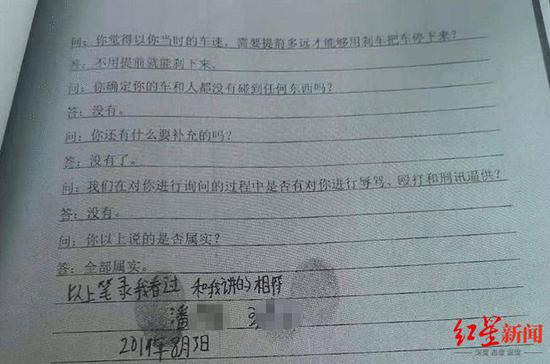 问：你觉得以你当时的车速，需要提前多远才能够用刹车把车停下来？
答：不用提前就能刹下来。
问：你确定你的车和人都没有碰到任何东西吗？
答：没有。
问：你还有什么要补充的吗？
答：没有了。
问：我们在对你进行询问的过程中是否有对你进行辱骂、殴打和刑讯逼供？
答：没有。
问：你以上说的是否属实？
答：全部属实。
以上笔录我看过 和我讲的相符
潘
2019年8月3日
红星新闻
深度 态度 温度